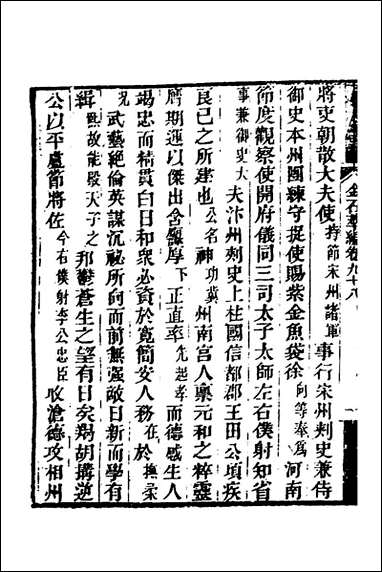 金石萃編卷九十八　一
將吏朝散大夫使持節宋州諸軍事行宋州刺史兼侍
御史本州團練守捉使賜紫金魚袋徐向等奉爲河南
節度觀察使開府儀同三司太子太師左右僕射知省
事兼御史大夫汴州刺史上柱國信都郡王田公頃疾
良已之所建也公名神功冀州南宮人稟元和之粹靈
膺期運以傑出含厚下正直率先起孝而德感生人
竭忠而精貫白日和衆必資於寬簡安人務在於撫柔
況武藝絶倫英謀沉祕所向而前無強敵日新而學有
緝熙故能殿天子之邦鬱蒼生之望有日矣羯胡搆逆
公以平盧節將佐今右僕射李公忠臣收滄德攻相州